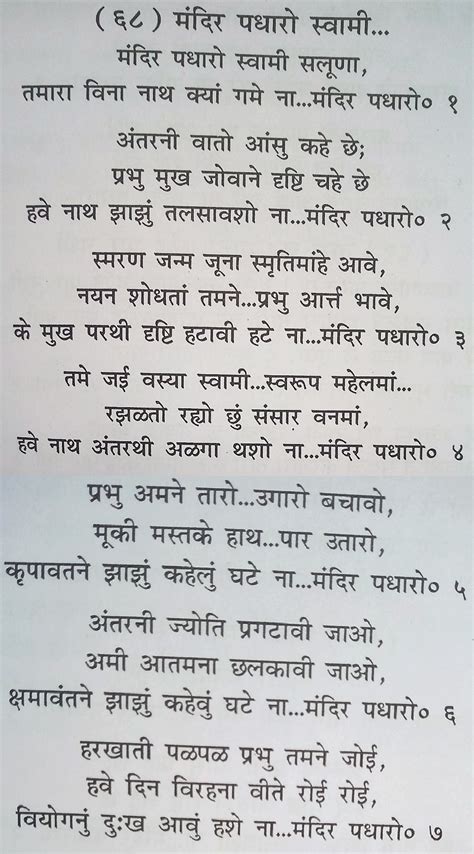 (६८) मंदिर पधारो स्वामी...
मंदिर पधारो स्वामी सलूणा,
तमारा विना नाथ क्यां गमे ना...मंदिर पधारो० १
अंतरनी वातो आंसु कहे छे;
प्रभु मुख जोवाने दृष्टि चहे छे
हवे नाथ झाझुं तलसावशो ना...मंदिर पधारो० २
स्मरण जन्म जूना स्मृतिमांहे आवे,
नयन शोधतां तमने...प्रभु आर्त्त भावे,
के मुख परथी दृष्टि हटावी हटे ना...मंदिर पधारो० ३
तमे जई वस्या स्वामी...स्वरूप महेलमां...
रझळतो रह्यो छुं संसार वनमां,
हवे नाथ अंतरथी अळगा थशो ना...मंदिर पधारो० ४
प्रभु अमने तारो...उगारो बचावो,
मूकी मस्तके हाथ...पार उतारो,
कृपावतने झाझुं कहेलुं घटे ना...मंदिर पधारो० ५
अंतरनी ज्योति प्रगटावी जाओ,
अमी आतमना छलकावी जाओ,
क्षमावंतने झाझुं कहेवुं घटे ना...मंदिर पधारो० ६
हरखाती पळपळ प्रभु तमने जोई,
हवे दिन विरहना वीते रोई रोई,
वियोगनुं दुःख आवुं हशे ना...मंदिर पधारो० ७